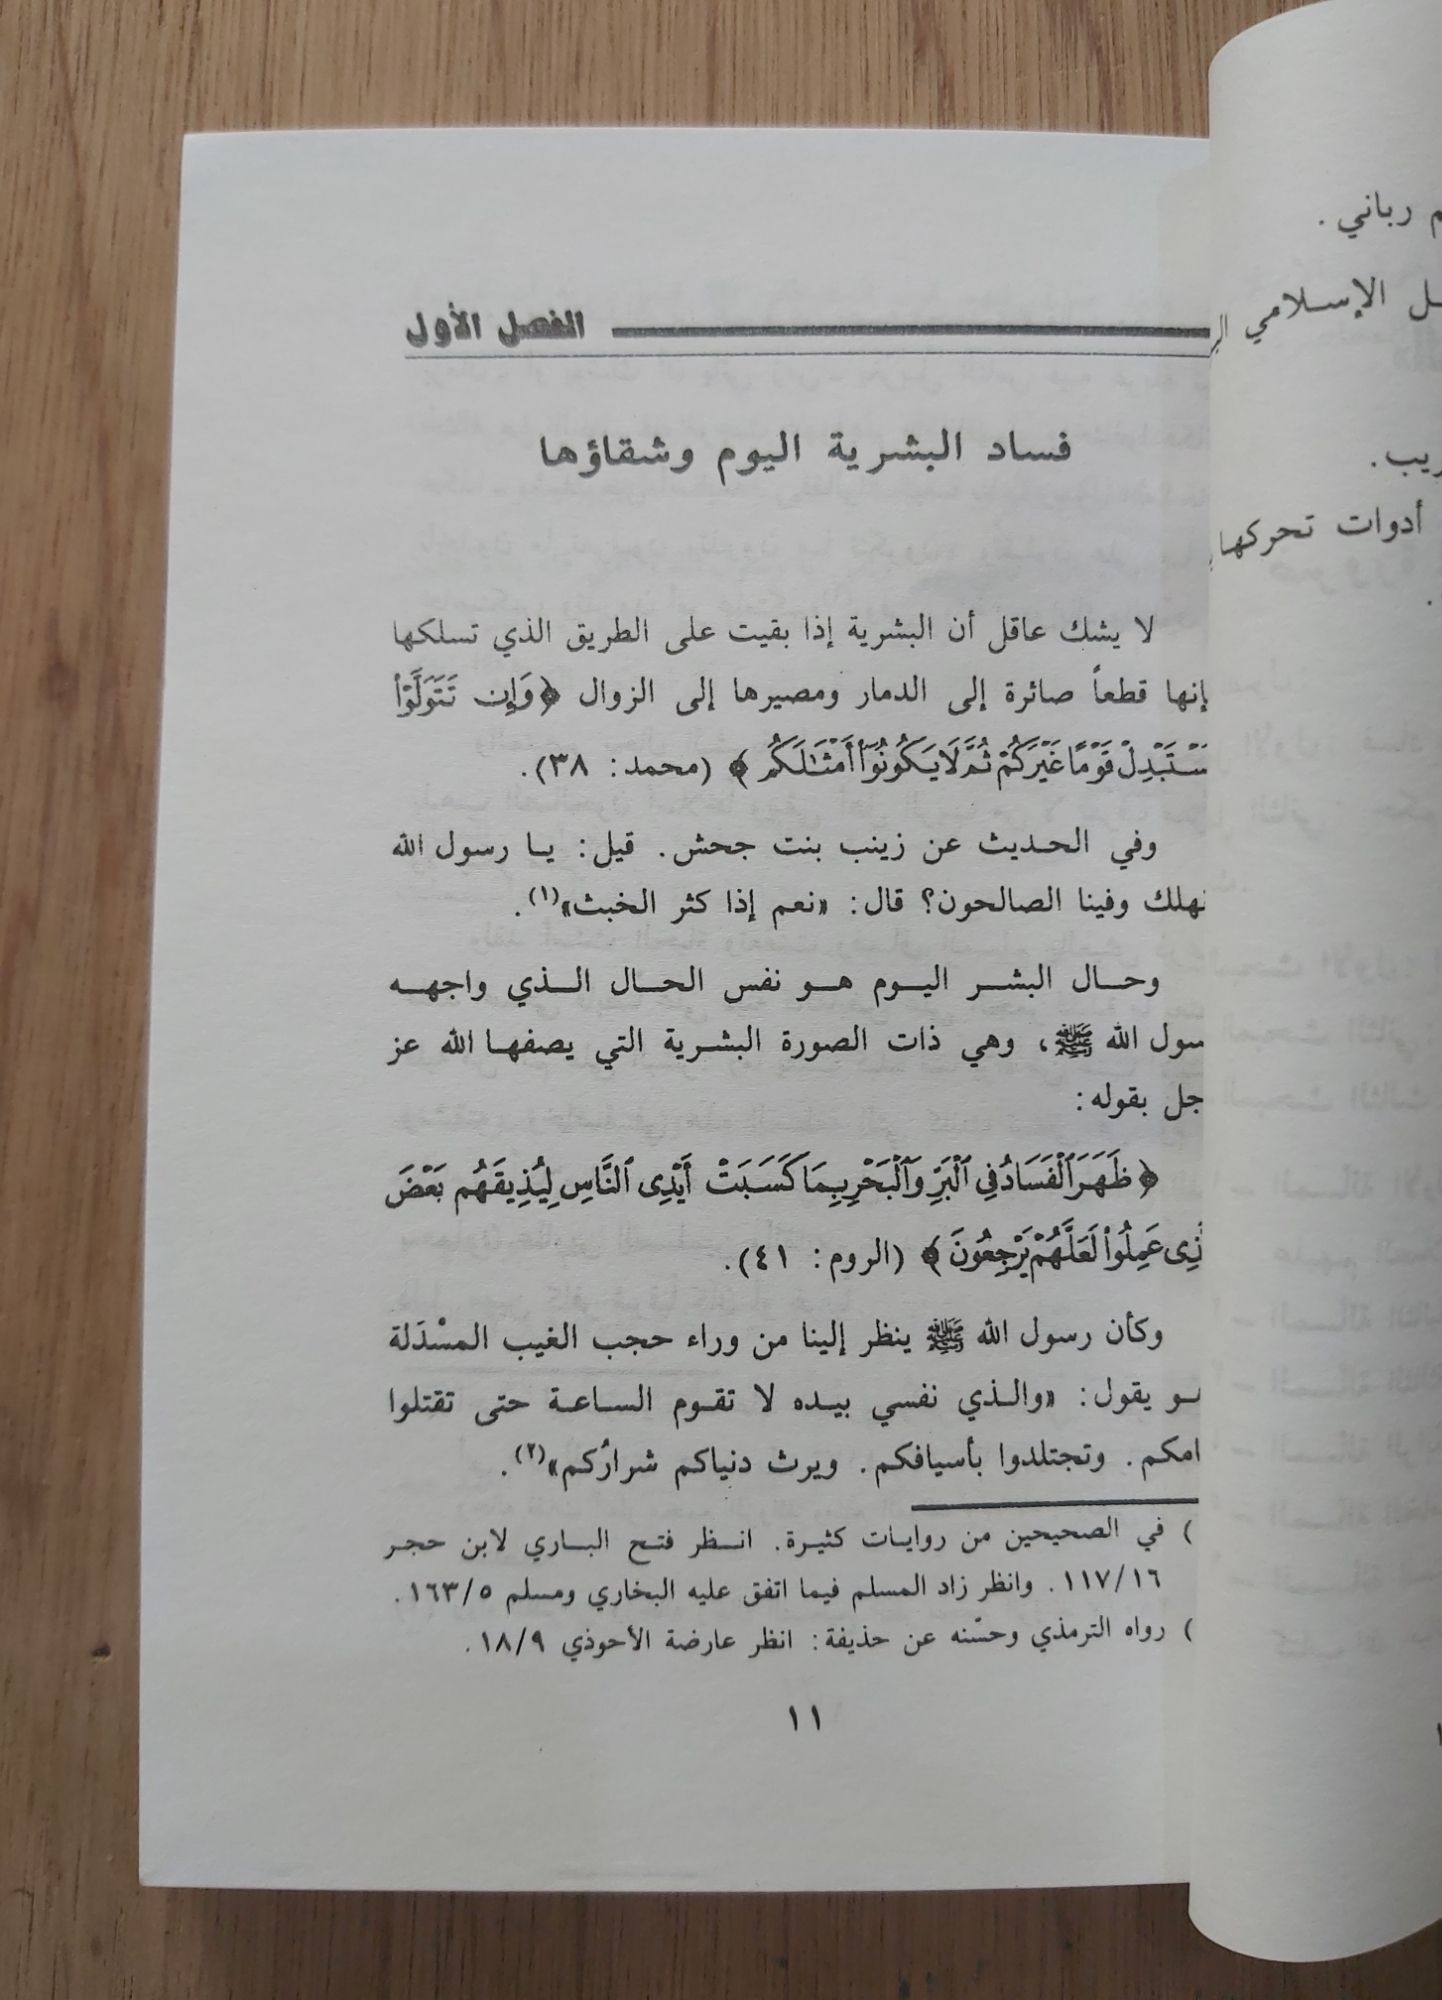 الفصل الأول
فساد البشرية اليوم وشقاؤها
لا يشك عاقل أن البشرية إذا بقيت على الطريق الذي تسلكها
إنها قطعاً صائرة إلى الدمار ومصيرها إلى الزوال ﴿وَإِن تَتَوَلَّوْا۟
غَيْرَكُمْ ثُمَّ لَا يَكُونُوٓا۟ أَمْثَٰلَكُم ﴾ (محمد: ٣٨).
وفي الحديث عن زينب بنت جحش. قيل: يا رسول الله
وفينا الصالحون؟ قال: «نعم إذا كثر الخبث»(١).
وحال البشر اليوم هو نفس الحال الذي واجهه
الله ﷺ، وهي ذات الصورة البشرية التي يصفها الله عز
جل بقوله:
﴿ظَهَرَ ٱلْفَسَادُ فِى ٱلْبَرِّ وَٱلْبَحْرِ بِمَا كَسَبَتْ أَيْدِى ٱلنَّاسِ لِيُذِيقَهُم بَعْضَ
عَمِلُوا۟ لَعَلَّهُمْ يَرْجِعُونَ ﴾ (الروم: ٤١).
وكأن رسول الله ﷺ ينظر إلينا من وراء حجب الغيب المسْدَلة
يقول: «والذي نفسي بيده لا تقوم الساعة حتى تقتلوا
امكم. وتجتلدوا بأسيافكم. ويرث دنياكم شرارُكم»(٢).
) في الصحيحين من روايات كثيرة. انظر فتح الباري لابن حجر
١١٧/١٦. وانظر زاد المسلم فيما اتفق عليه البخاري ومسلم ١٦٣/٥.
) رواه الترمذي وحسّنه عن حذيفة: انظر عارضة الأحوذي ١٨/٩.
١١
رباني.
الإسلامي
أدوات تحركها